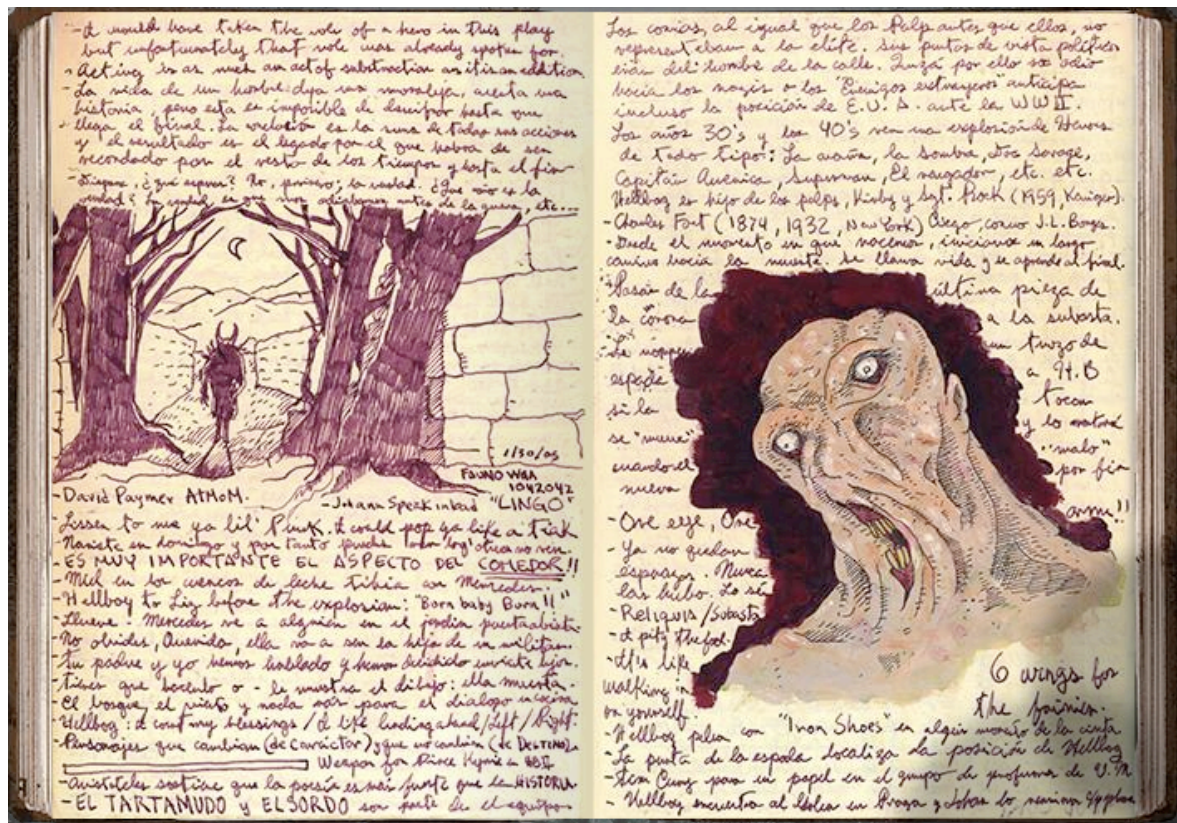 -I would have taken the role of a hero in this play
but unfortunately that role was already spoken for.
- Acting is as much an act of substraction as it is an addition
- La vida de un hombre deja una moraleja, acerta una
historia, pero esta es imposible de descifrar hasta que
llega el final. La relación es la suma de todas sus acciones
y el resultado es el legado por el que habra de ser
recordado por el resto de los tiempos y hasta el fin
- Dispara, ¿qué esperas? No, primero, la verdad. ¿Que es la
verdad? La verdad es que nos odiabamos antes de la guerra, etc...
1/30/05
FAUNO WBA
1042042
-David Paymer ATMoM. -Johann Speakinbad "LINGO"
-Lissen to me ya lil' Punk. I could pop ya like a tick
- Naciste en domingo y por tanto puedes
- ES MUY IMPORTANTE EL ASPECTO DEL COMEDOR!!
- Miel en los cuencos de leche tibia con Mercedes.
-Hellboy to Liz before the explosion: "Born baby Born!!"
-Llueve. Mercedes ve a alguien en el jardin
-No olvides, Querida, ella va a ser la hija de un militar.
-Tu padre y yo hemos hablado y hemos decidido enviarte lejos.
-Tienes que hacerlo o - le muestra el dibujo: ella muerta.
-El bosque, el viento y nada mas para el dialogo en cocina
-Hellboy: I count my blessings / I like lending a hand/Left/Right.
-Personajes que cambian (de Carácter) y que no cambian (de DESTINO).
Weapon for Prince in HBII
-Aristoteles sostiene que la poesía es más fuerte que la HISTORIA
-EL TARTAMUDO y EL SORDO son parte de el equipo
Los comics, al igual que los Pulps antes que ellos, no
representaban a la elite. Sus puntos de vista políticos
eran del hombre de la calle. Quizá por ello su odio
hacia los nazis o los "Enemigos extranjeros" anticipa
incluso la posición de E.U.A. ante la WWII.
Los años 30's y los 40's ven una explosión de Heroes
de todo tipo: La araña, la Sombra, Doc Savage,
Capitán America, Superman, El vengador, etc. etc.
Hellboy es hijo de los pulps, Kirby y Sgt. Rock (1959, Kanigher).
-Charles Fort (1874, 1932, New York) Ciego, como J.L. Borges.
-Desde el momento en que nacemos, iniciamos un largo
camino hacia la muerte. Se llama vida y se aprende al final.
-Pasan de la última pieza de
la corona a la subasta.
un trozo de
espada a H.B
si la tocan
se "muere" y lo matará
cuando el "malo"
nueva por fin
arme!!
-One eye, One
-Ya no quedan
esperanzas. Nunca
las hubo. Lo se
-Reliquis/Subasta
-I pity the fool.
-It's like
walking in
on yourself.
6 wings for
the fairies.
-Hellboy pelea con "Iron Shoes" en algún momento de la cinta
-La punta de la espada localiza la posición de Hellboy
para un papel en el grupo de
-Hellboy encuentra al Golem en Praga y Johan lo